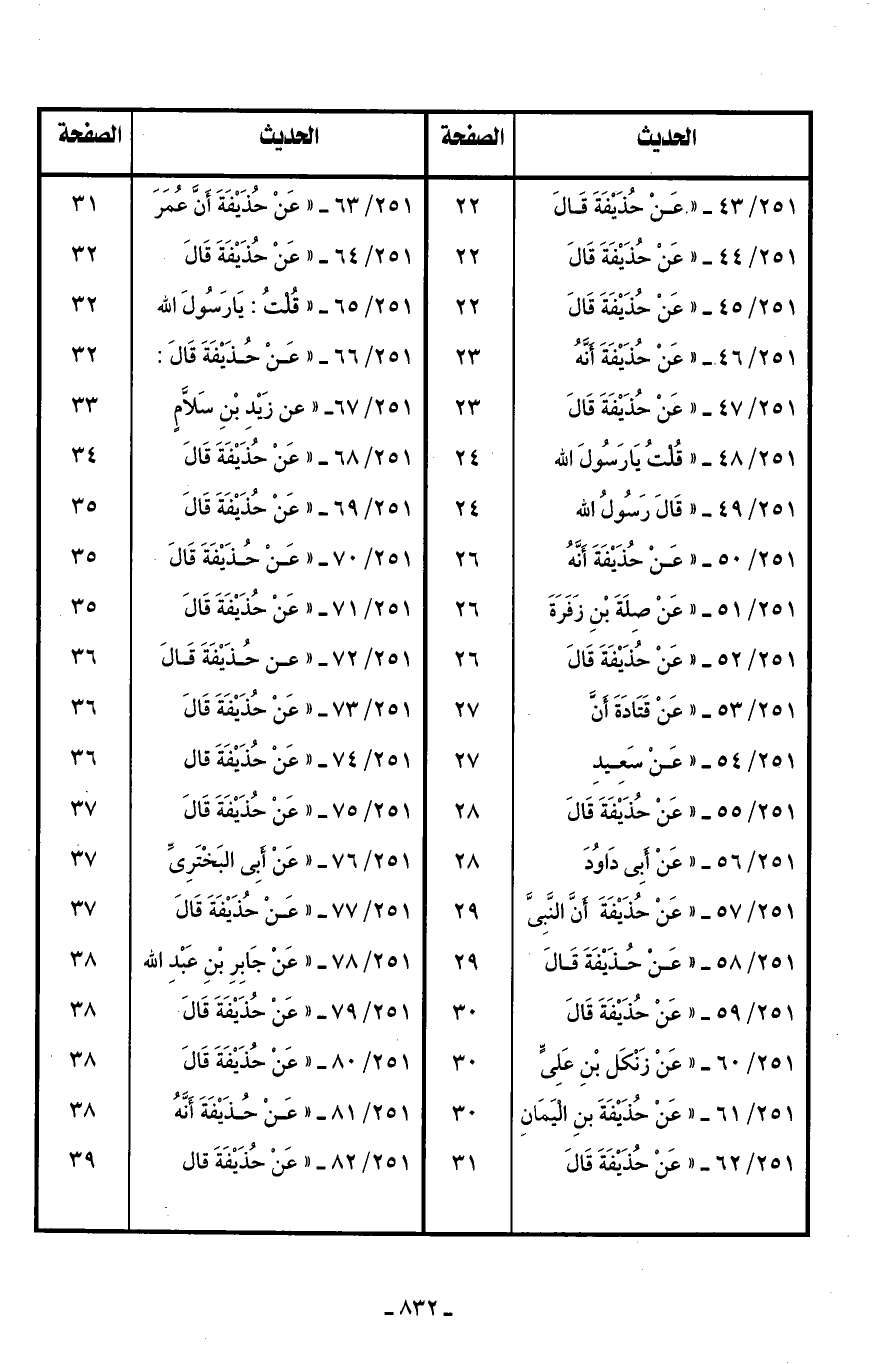 الحديث الصفحة الحديث الصفحة
٢٥١/ ٤٣ ـ « عَـنْ حُذَيْفَةَ قَـالَ ٢٢ ٢٥١/ ٦٣ ـ « عَنْ حُذَيْفَةَ أَنَّ عُمَرَ ٣١
٢٥١/ ٤٤ ـ « عَنْ حُذَيْفَةَ قَالَ ٢٢ ٢٥١/ ٦٤ ـ « عَنْ حُذَيْفَةَ قَالَ ٣٢
٢٥١/ ٤٥ ـ « عَنْ حُذَيْفَةَ قَالَ ٢٢ ٢٥١/ ٦٥ ـ « قُلْتُ : يَارَسُولَ الله ٣٢
٢٥١/ ٤٦ ـ « عَنْ حُذَيْفَةَ أَنَّهُ ٢٣ ٢٥١/ ٦٦ ـ « عَـنْ حُـذَيْفَةَ قَالَ : ٣٢
٢٥١/ ٤٧ ـ « عَنْ حُذَيْفَةَ قَالَ ٢٣ ٢٥١/ ٦٧ـ « عن زَيْدِ بْنِ سَلاَّمٍ ٣٣
٢٥١/ ٤٨ ـ « قُلْتُ يَارَسُولَ الله ٢٤ ٢٥١/ ٦٨ ـ « عَنْ حُذَيْفَةَ قَالَ ٣٤
٢٥١/ ٤٩ ـ « قَالَ رَسُولُ الله ٢٤ ٢٥١/ ٦٩ ـ « عَنْ حُذَيْفَةَ قَالَ ٣٥
٢٥١/ ٥٠ ـ « عَـنْ حُذَيْفَةَ أَنَّهُ ٢٦ ٢٥١/ ٧٠ ـ « عَـنْ حُـذَيْفَةَ قَالَ ٣٥
٢٥١/ ٥١ ـ « عَنْ صِلَةَ بْنِ زَفَرَةَ ٢٦ ٢٥١/ ٧١ ـ « عَنْ حُذَيْفَةَ قَالَ ٣٥
٢٥١/ ٥٢ ـ « عَنْ حُذَيْفَةَ قَالَ ٢٦ ٢٥١/ ٧٢ ـ « عـن حُـذَيْفَةَ قَـالَ ٣٦
٢٥١/ ٥٣ ـ « عَنْ قَتَادَةَ أَنَّ ٢٧ ٢٥١/ ٧٣ ـ « عَنْ حُذَيْفَةَ قَالَ ٣٦
٢٥١/ ٥٤ ـ « عَـنْ سَعِـيدٍ ٢٧ ٢٥١/ ٧٤ ـ « عَنْ حُذَيْفَةَ قال ٣٦
٢٥١/ ٥٥ ـ « عَنْ حُذَيْفَةَ قَالَ ٢٨ ٢٥١/ ٧٥ ـ « عَنْ حُذَيْفَةَ قَالَ ٣٧
٢٥١/ ٥٦ ـ « عَنْ أَبِى دَاوُدَ ٢٨ ٢٥١/ ٧٦ ـ « عَنْ أَبِى البَخْتَرِىِّ ٣٧
٢٥١/ ٥٧ ـ « عَنْ حُذَيْفَةَ أَنَّ النَّبِىَّ ٢٩ ٢٥١/ ٧٧ ـ « عَـنْ حُذَيْفَةَ قَالَ ٣٧
٢٥١/ ٥٨ ـ « عَـنْ حُـذَيْفَةَ قَـالَ ٢٩ ٢٥١/ ٧٨ ـ « عَنْ جَابِرِ بْنِ عَبْدِ الله ٣٨
٢٥١/ ٥٩ ـ « عَنْ حُذَيْفَةَ قَالَ ٣٠ ٢٥١/ ٧٩ ـ « عَنْ حُذَيْفَةَ قَالَ ٣٨
٢٥١/ ٦٠ ـ « عَنْ زَنْكَل بْنِ عَلِىٍّ ٣٠ ٢٥١/ ٨٠ ـ « عَنْ حُذَيْفَةَ قَالَ ٣٨
٢٥١/ ٦١ ـ « عَنْ حُذَيْفَةَ بنِ الْيَمَانِ ٣٠ ٢٥١/ ٨١ ـ « عَـنْ حُـذَيْفَةَ أَنَّهُ ٣٨
٢٥١/ ٦٢ ـ « عَنْ حُذَيْفَةَ قَالَ ٣١ ٢٥١/ ٨٢ ـ « عَنْ حُذَيْفَةَ قال ٣٩
ـ ٨٣٢ ـ